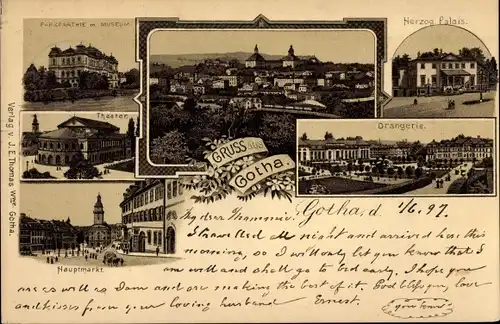 PARTHIE m MUSEUM
Herzog. Palais.
Theater.
Orangerie.
GRUSS aus
Gotha.
Hauptmarkt
Verlag v. J. E. Thomas Wwe Gotha.
Gotha, d. 1/6. 97.
My dear
I travelled all night and arrived here this
morning, so I will only let you know that I
am well and shall go to bed early. I hope you
are as well as I am and are making the best of it. God bless you, love
and kisses from your loving husband Ernest.